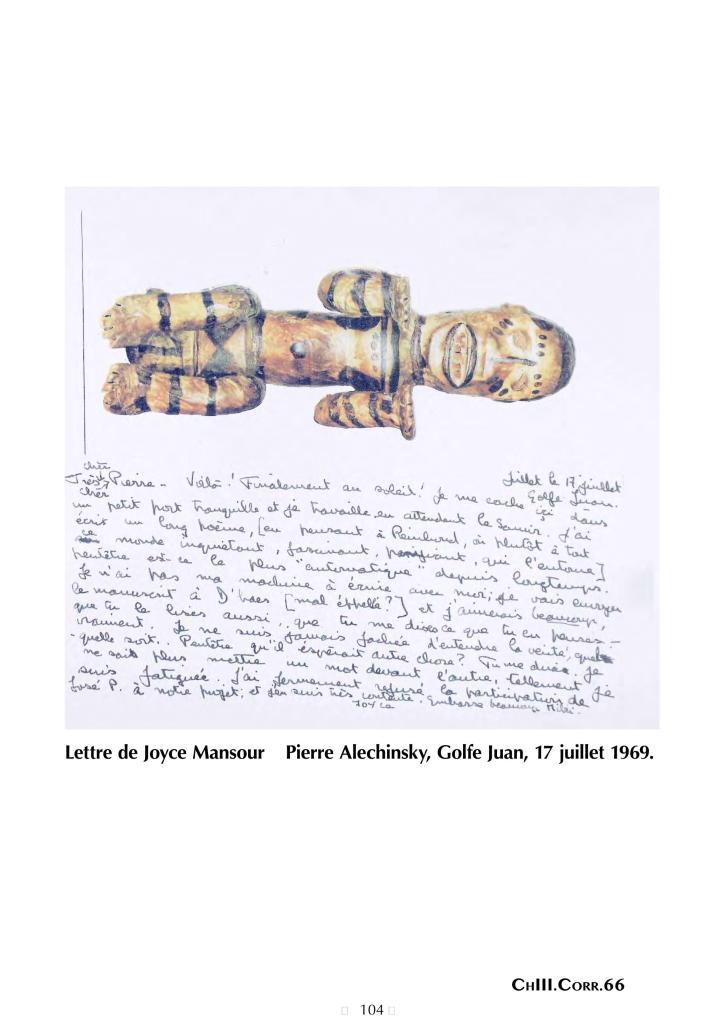 Juillet le 17 juillet
Golfe Juan.
cher
Très Pierre - Voilà! Finalement au soleil! Je me cache ici dans
cher
un petit port tranquille et je travaille en attendant le Samir. J'ai
écrit un long poème, [en pensant à Reinhoud, où plutôt à tout
ce monde inquiétant, fascinant, qui l'entoure]
peutêtre est-ce le plus "automatique" depuis longtemps.
Je n'ai pas ma machine à écrire avec moi; je vais envoyer
le manuscrit à D'haes [mal éppellé?] et j'aimerais beaucoup,
que tu le lises aussi.. que tu me dises ce que tu en penses -
vraiment. Je ne suis jamais fachée d'entendre la vérité, quelle
- quelle soit.. Peutêtre qu'il éspérait autre chose? Tu me diras. Je
ne sais plus mettre un mot devant l'autre, tellement je
suis fatiguée.. j'ai fermement refusé la participation de
José P. à notre projet; et j'en suis très contente. Embrasse beaucoup Miki.
Joyce
Lettre de Joyce Mansour Pierre Alechinsky, Golfe Juan, 17 juillet 1969.
CHIII.CORR.66
104